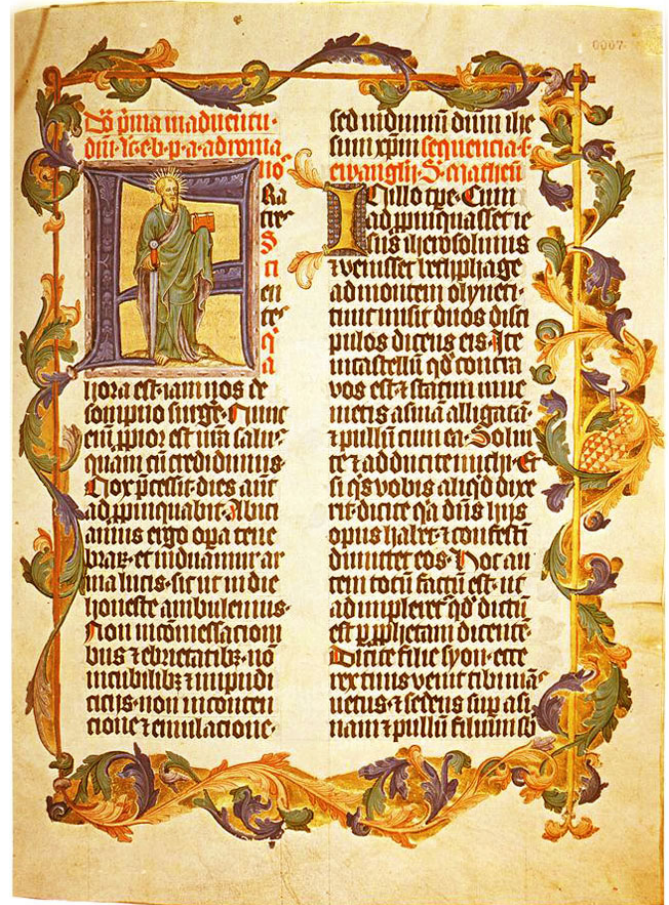 0007
Dō p̄ma in adventu
dni. lc̄. e. b. p. a. ad roma
nos
Ra
tres
Sci
en
tes
q̄
a
hora est. iam nos de
sompno surgē. Nunc
em̄ ppior est nr̄a salus
quam cū credidimus.
Nox p̄cessit. dies aūt
ad ppinquabit. Abici
amus ergo opa tene
brarꝝ. et induamur ar
ma lucis. sicut in die
honeste ambulemus.
Non in cōmessacioni
bus ⁊ ebrietatibꝫ. nō
in cubilibꝫ ⁊ inpudi
ciciis. non in conten
cione ⁊ emulacione.
sed induimī dnm ihe
sum xpm sequencia s.
ewanglii. S. Matheū
In illo tpe. Cum
ad ppinquasset ie
sus iherosolimis
⁊ venisset bethphage
ad montem olyueti.
tunc misit duos disci
pulos dicens eis. Ite
in castellū qd̄ contra
vos est ⁊ statim inue
nietis asinā alligatā.
⁊ pullū cum ea. Solui
te ⁊ adducite michi. Et
si qs vobis aliqd dixe
rit. dicite qa dn̄s hiis
opus habet. ⁊ confestī
dimittet eos. Hoc au
tem totū factū est. ut
ad impleret qd̄ dictū
est p pphetam dicentē.
Dicite filie syon. ecce
rex tuus venit tibi mā
suetus. ⁊ sedens sup asi
nam ⁊ pullū filium sb